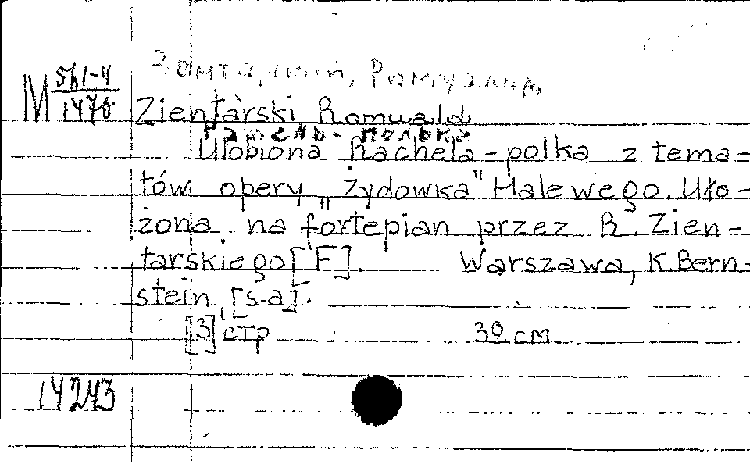 M 561-4/1470
Зента, Ромуальд,
Zientarski Romuald
Рахель - полька
Ulobiona Rachela - polka z tema-
tów opery „Żydówka" Halewego. Uło-
żona na fortepian przez R. Zien-
tarskiego [F]. Warszawa, K. Bern-
stein, [s-a].
[3] стр 30 см
14243